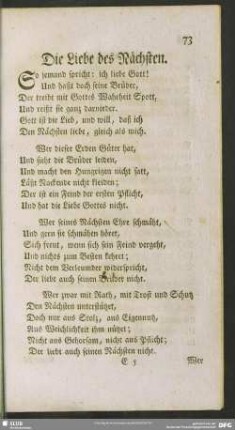 73
Die Liebe des Nächsten.
So jemand spricht: ich liebe Gott!
Und haßt doch seine Brüder,
Der treibt mit Gottes Wahrheit Spott,
Und reißt sie ganz darnieder.
Gott ist die Lieb, und will, daß ich
Den Nächsten liebe, gleich als mich.
Wer dieser Erden Güter hat,
Und sieht die Brüder leiden,
Und macht den Hungrigen nicht satt,
Läßt Nackende nicht kleiden;
Der ist ein Feind der ersten Pflicht,
Und hat die Liebe Gottes nicht.
Wer seines Nächsten Ehre schmäht,
Und gern sie schmähen höret,
Sich freut, wenn sich sein Feind vergeht,
Und nichts zum Besten kehret;
Nicht dem Verleumder widerspricht,
Der liebt auch seinen Bruder nicht.
Wer zwar mit Rath, mit Trost und Schutz
Den Nächsten unterstützet,
Doch nur aus Stolz, aus Eigennutz,
Aus Weichlichkeit ihm nützet;
Nicht aus Gehorsam, nicht aus Pflicht;
Der liebt auch seinen Nächsten nicht.
E 5 Wer
SLUB